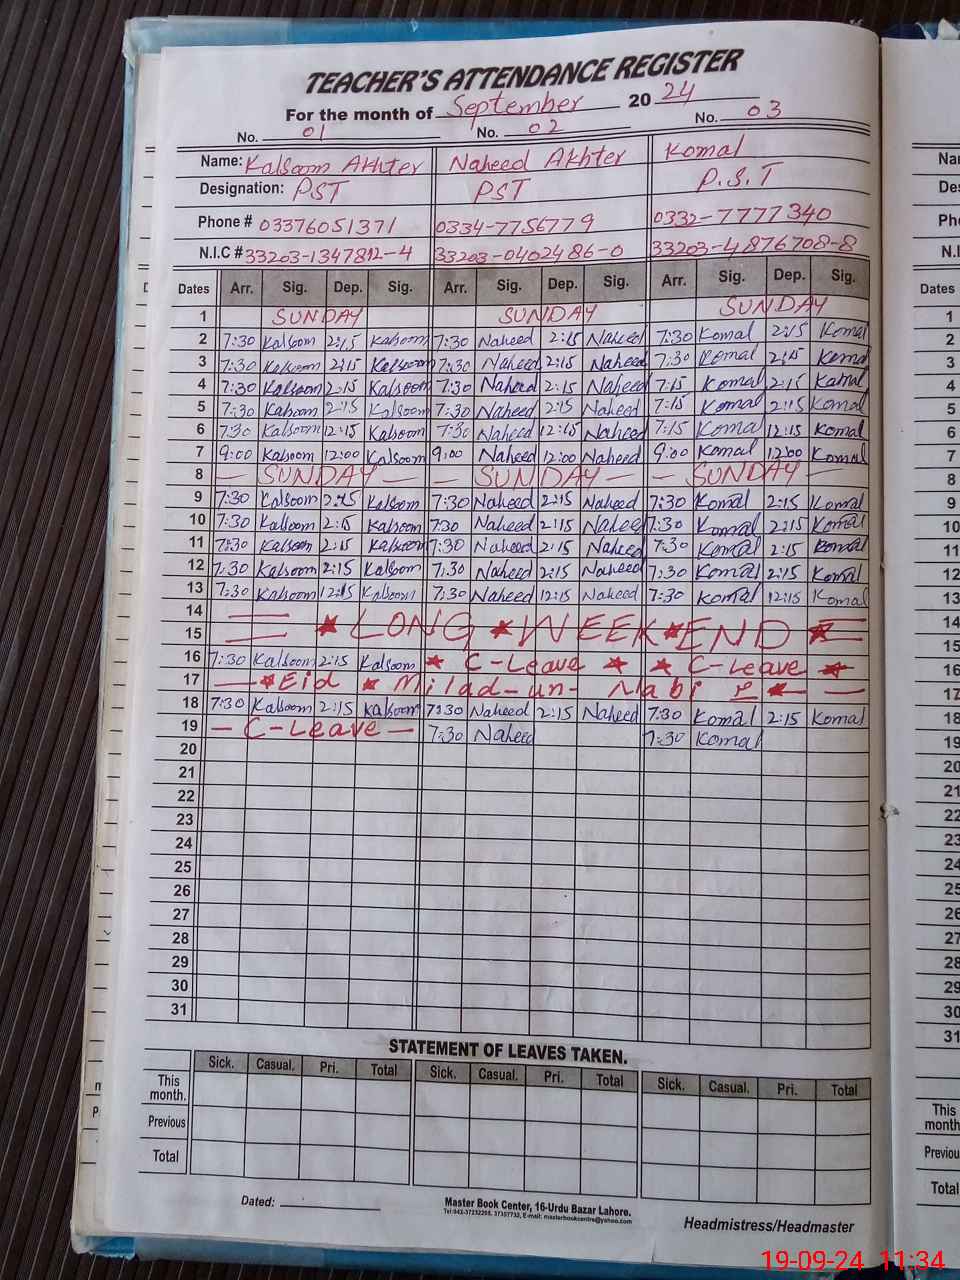 TEACHER'S ATTENDANCE REGISTER
For the month of September 2024
No. 01 No. 02 No. 03
Name: Kalsoom Akhter Naheed Akhter Komal
Designation: PST PST P.S.T
Phone # 03376051371 0334-7756779 0332-7777340
N.I.C # 33203-1347812-4 33203-0402486-0 33203-4876708-8
Dates Arr. Sig. Dep. Sig. Arr. Sig. Dep. Sig. Arr. Sig. Dep. Sig.
1 SUNDAY SUNDAY SUNDAY
2 7:30 Kalsoom 2:15 Kalsoom 7:30 Naheed 2:15 Naheed 7:30 Komal 2:15 Komal
3 7:30 Kalsoom 2:15 Kalsoom 7:30 Naheed 2:15 Naheed 7:30 Komal 2:15 Komal
4 7:30 Kalsoom 2:15 Kalsoom 7:30 Naheed 2:15 Naheed 7:15 Komal 2:15 Komal
5 7:30 Kalsoom 2:15 Kalsoom 7:30 Naheed 2:15 Naheed 7:15 Komal 2:15 Komal
6 7:30 Kalsoom 12:15 Kalsoom 7:30 Naheed 12:15 Naheed 7:15 Komal 12:15 Komal
7 9:00 Kalsoom 12:00 Kalsoom 9:00 Naheed 12:00 Naheed 9:00 Komal 12:00 Komal
8 — SUNDAY — — SUNDAY — — SUNDAY —
9 7:30 Kalsoom 2:15 Kalsoom 7:30 Naheed 2:15 Naheed 7:30 Komal 2:15 Komal
10 7:30 Kalsoom 2:15 Kalsoom 7:30 Naheed 2:15 Naheed 7:30 Komal 2:15 Komal
11 7:30 Kalsoom 2:15 Kalsoom 7:30 Naheed 2:15 Naheed 7:30 Komal 2:15 Komal
12 7:30 Kalsoom 2:15 Kalsoom 7:30 Naheed 2:15 Naheed 7:30 Komal 2:15 Komal
13 7:30 Kalsoom 12:15 Kalsoom 7:30 Naheed 12:15 Naheed 7:30 Komal 12:15 Komal
14
15 ★ LONG ★ WEEK ★ END ★
16 7:30 Kalsoom 2:15 Kalsoom ★ C-Leave ★ ★ C-Leave ★
17 — ★ Eid ★ Milad-un- Nabi ★ — —
18 7:30 Kalsoom 2:15 Kalsoom 7:30 Naheed 2:15 Naheed 7:30 Komal 2:15 Komal
19 — C-Leave — 7:30 Naheed 7:30 Komal
20
21
22
23
24
25
26
27
28
29
30
31
STATEMENT OF LEAVES TAKEN.
Sick. Casual. Pri. Total Sick. Casual. Pri. Total Sick. Casual. Pri. Total
This month.
Previous
Total
Dated:
Master Book Center, 16-Urdu Bazar Lahore.
Headmistress/Headmaster
19-09-24 11:34